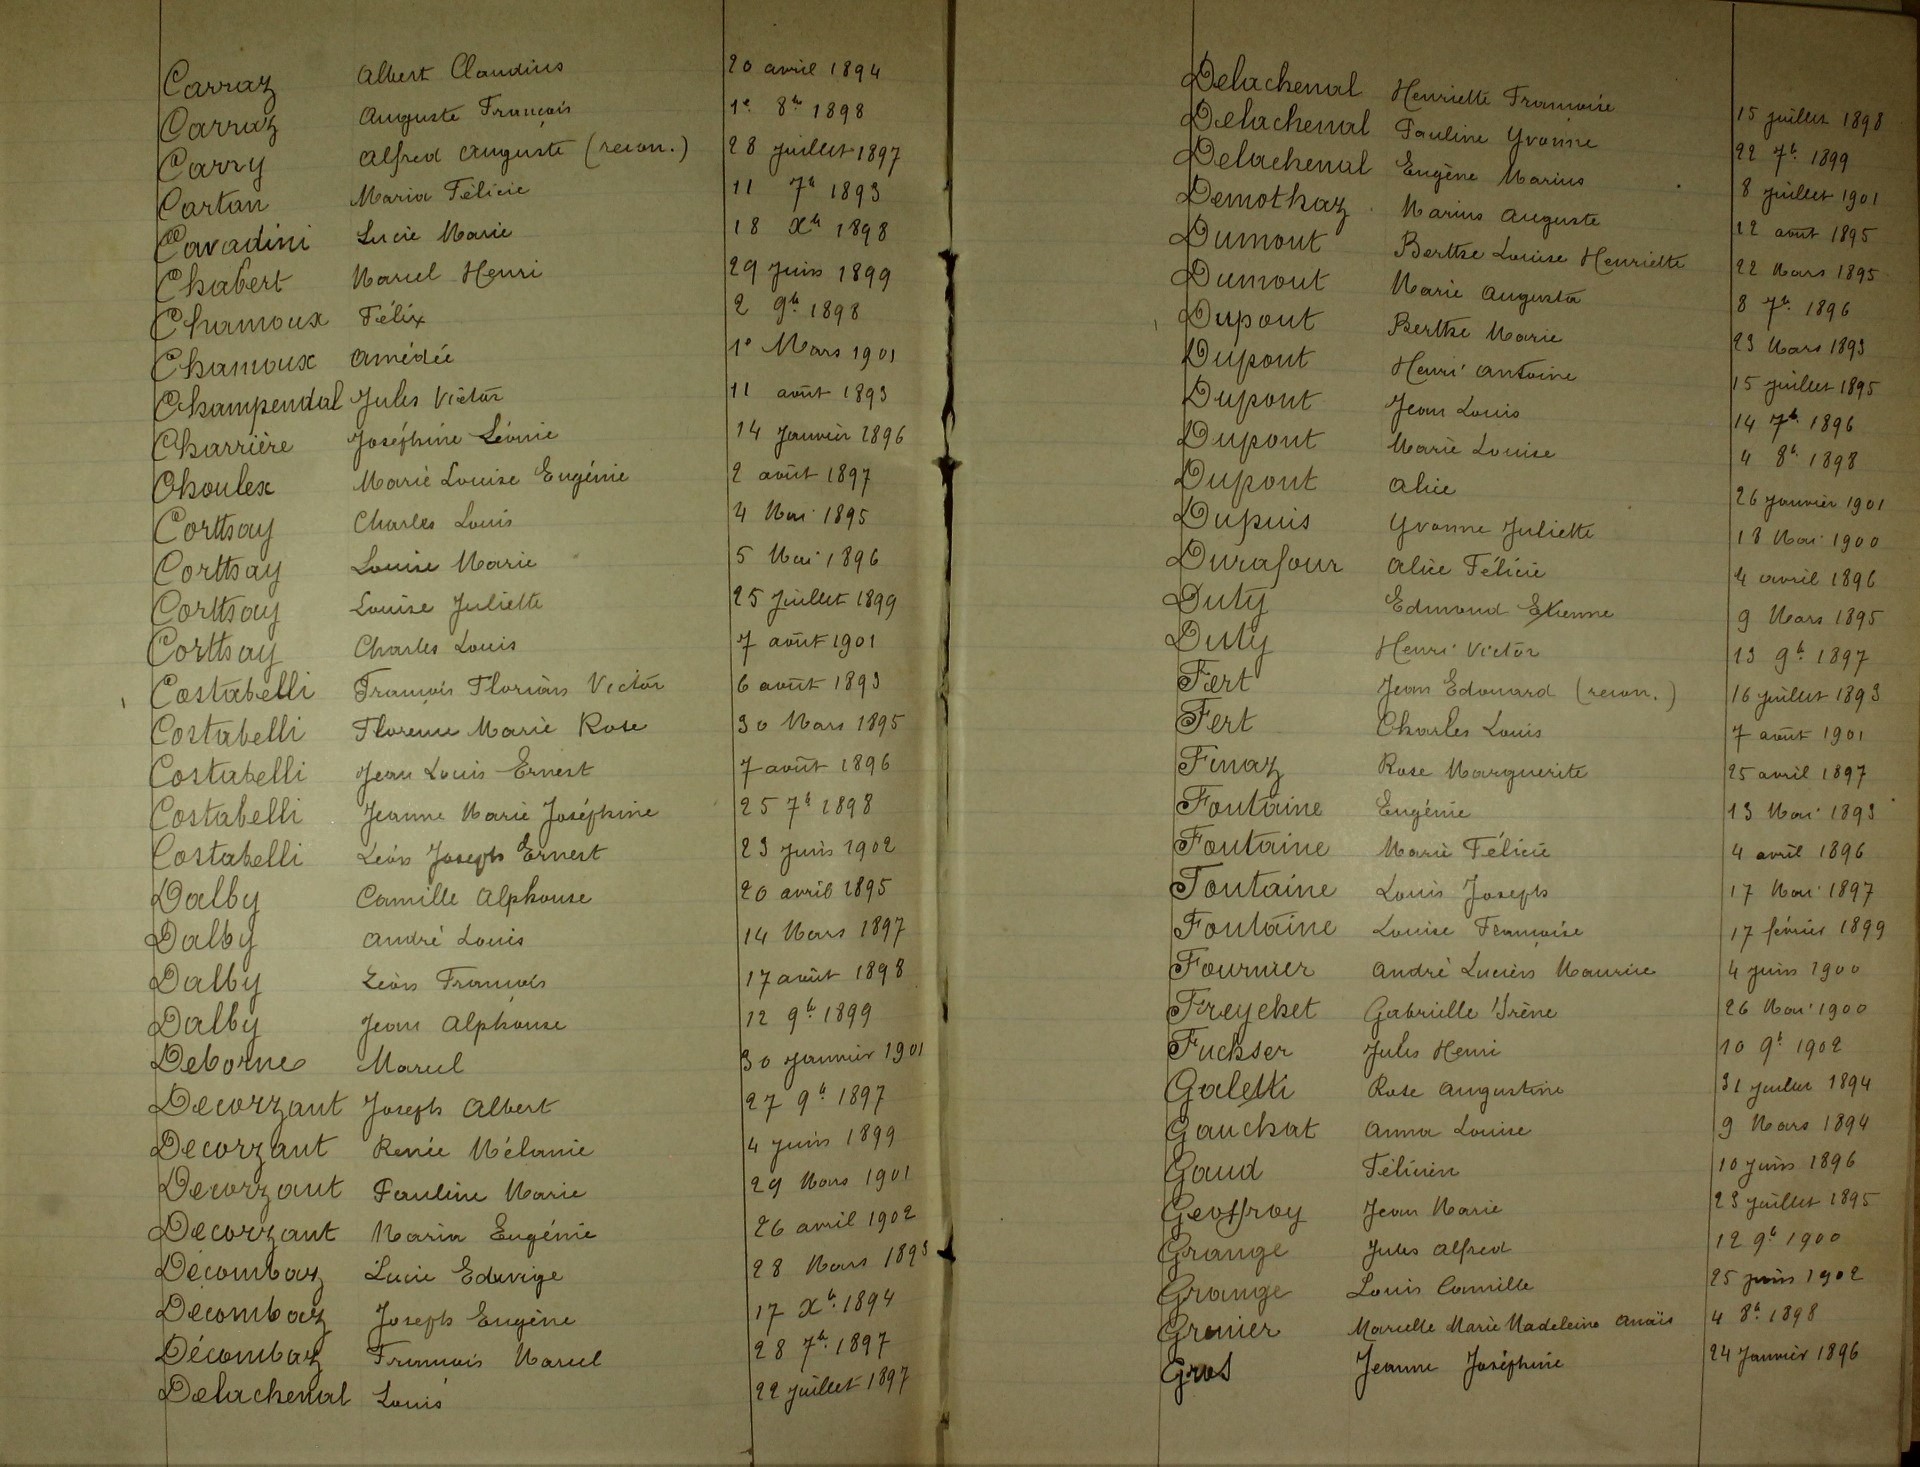 Carraz Albert Claudius 20 avril 1894
Carraz Auguste François 1e 8b 1898
Carry Alfred Auguste (recon.) 28 juillet 1897
Cartan Maria Félicie 11 7b 1893
Cavadini Lucie Marie 18 Xb 1898
Chabert Marcel Henri 29 Juin 1899
Chamoux Félix 2 9b. 1898
Chamoux Amédée 1e Mars 1901
Champendal Jules Victor 11 août 1893
Charrière Joséphine Léonie 14 Janvier 1896
Choulex Marie Louise Eugénie 2 août 1897
Corthay Charles Louis 4 Mai 1895
Corthay Louise Marie 5 Mai 1896
Corthay Louise Juliette 25 Juillet 1899
Corthay Charles Louis 7 août 1901
Costabelli François Florian Victor 6 août 1893
Costabelli Florence Marie Rose 30 Mars 1895
Costabelli Jean Louis Ernest 7 août 1896
Costabelli Jeanne Marie Joséphine 25 7b 1898
Costabelli Léon Joseph Ernest 23 Juin 1902
Dalby Camille Alphonse 20 avril 1895
Dalby André Louis 14 Mars 1897
Dalby Léon François 17 août 1898
Dalby Jean Alphonse 12 9b. 1899
Deborne Marcel 30 Janvier 1901
Decorzant Joseph Albert 27 9b. 1897
Decorzant Renée Mélanie 4 Juin 1899
Decorzant Pauline Marie 29 Mars 1901
Decorzant Maria Eugénie 26 avril 1902
Décombaz Lucie Eduvige 28 Mars 1893
Décombaz Joseph Eugène 17 Xb. 1894
Décombaz François Marcel 28 7b. 1897
Delachenal Louis 22 juillet 1897
Delachenal Henriette Françoise 15 juillet 1898
Delachenal Pauline Yvonne 22 7b. 1899
Delachenal Eugène Marius 8 juillet 1901
Demothaz Marius Auguste 12 août 1895
Dumont Berthe Louise Henriette 22 Mars 1895
Dumont Marie Augusta 8 7b. 1896
Dupont Berthe Marie 23 Mars 1893
Dupont Henri Antoine 15 juillet 1895
Dupont Jean Louis 14 7b. 1896
Dupont Marie Louise 4 8b. 1898
Dupont Alice 26 Janvier 1901
Dupuis Yvonne Juliette 18 Mai 1900
Durafour Alice Félicie 4 avril 1896
Duty Edmond Etienne 9 Mars 1895
Duty Henri Victor 13 9b. 1897
Fert Jean Edouard (recon.) 16 juillet 1893
Fert Charles Louis 7 août 1901
Finaz Rose Marguerite 25 avril 1897
Fontaine Eugénie 13 Mai 1893
Fontaine Marie Félicie 4 avril 1896
Fontaine Louis Joseph 17 Mai 1897
Fontaine Louise Françoise 17 février 1899
Fournier André Lucien Maurice 4 Juin 1900
Freychet Gabrielle Irène 26 Mai 1900
Fuchser Jules Henri 10 9b. 1902
Galetti Rose Augustine 31 juillet 1894
Gauchat Anna Louise 9 Mars 1894
Gaud Félicien 10 Juin 1896
Geoffroy Jean Marie 23 juillet 1895
Grange Jules Alfred 12 9b 1900
Grange Louis Camille 25 juin 1902
Grenier Marcelle Marie Madeleine Anaïs 4 8b. 1898
Gros Jeanne Joséphine 24 Janvier 1896